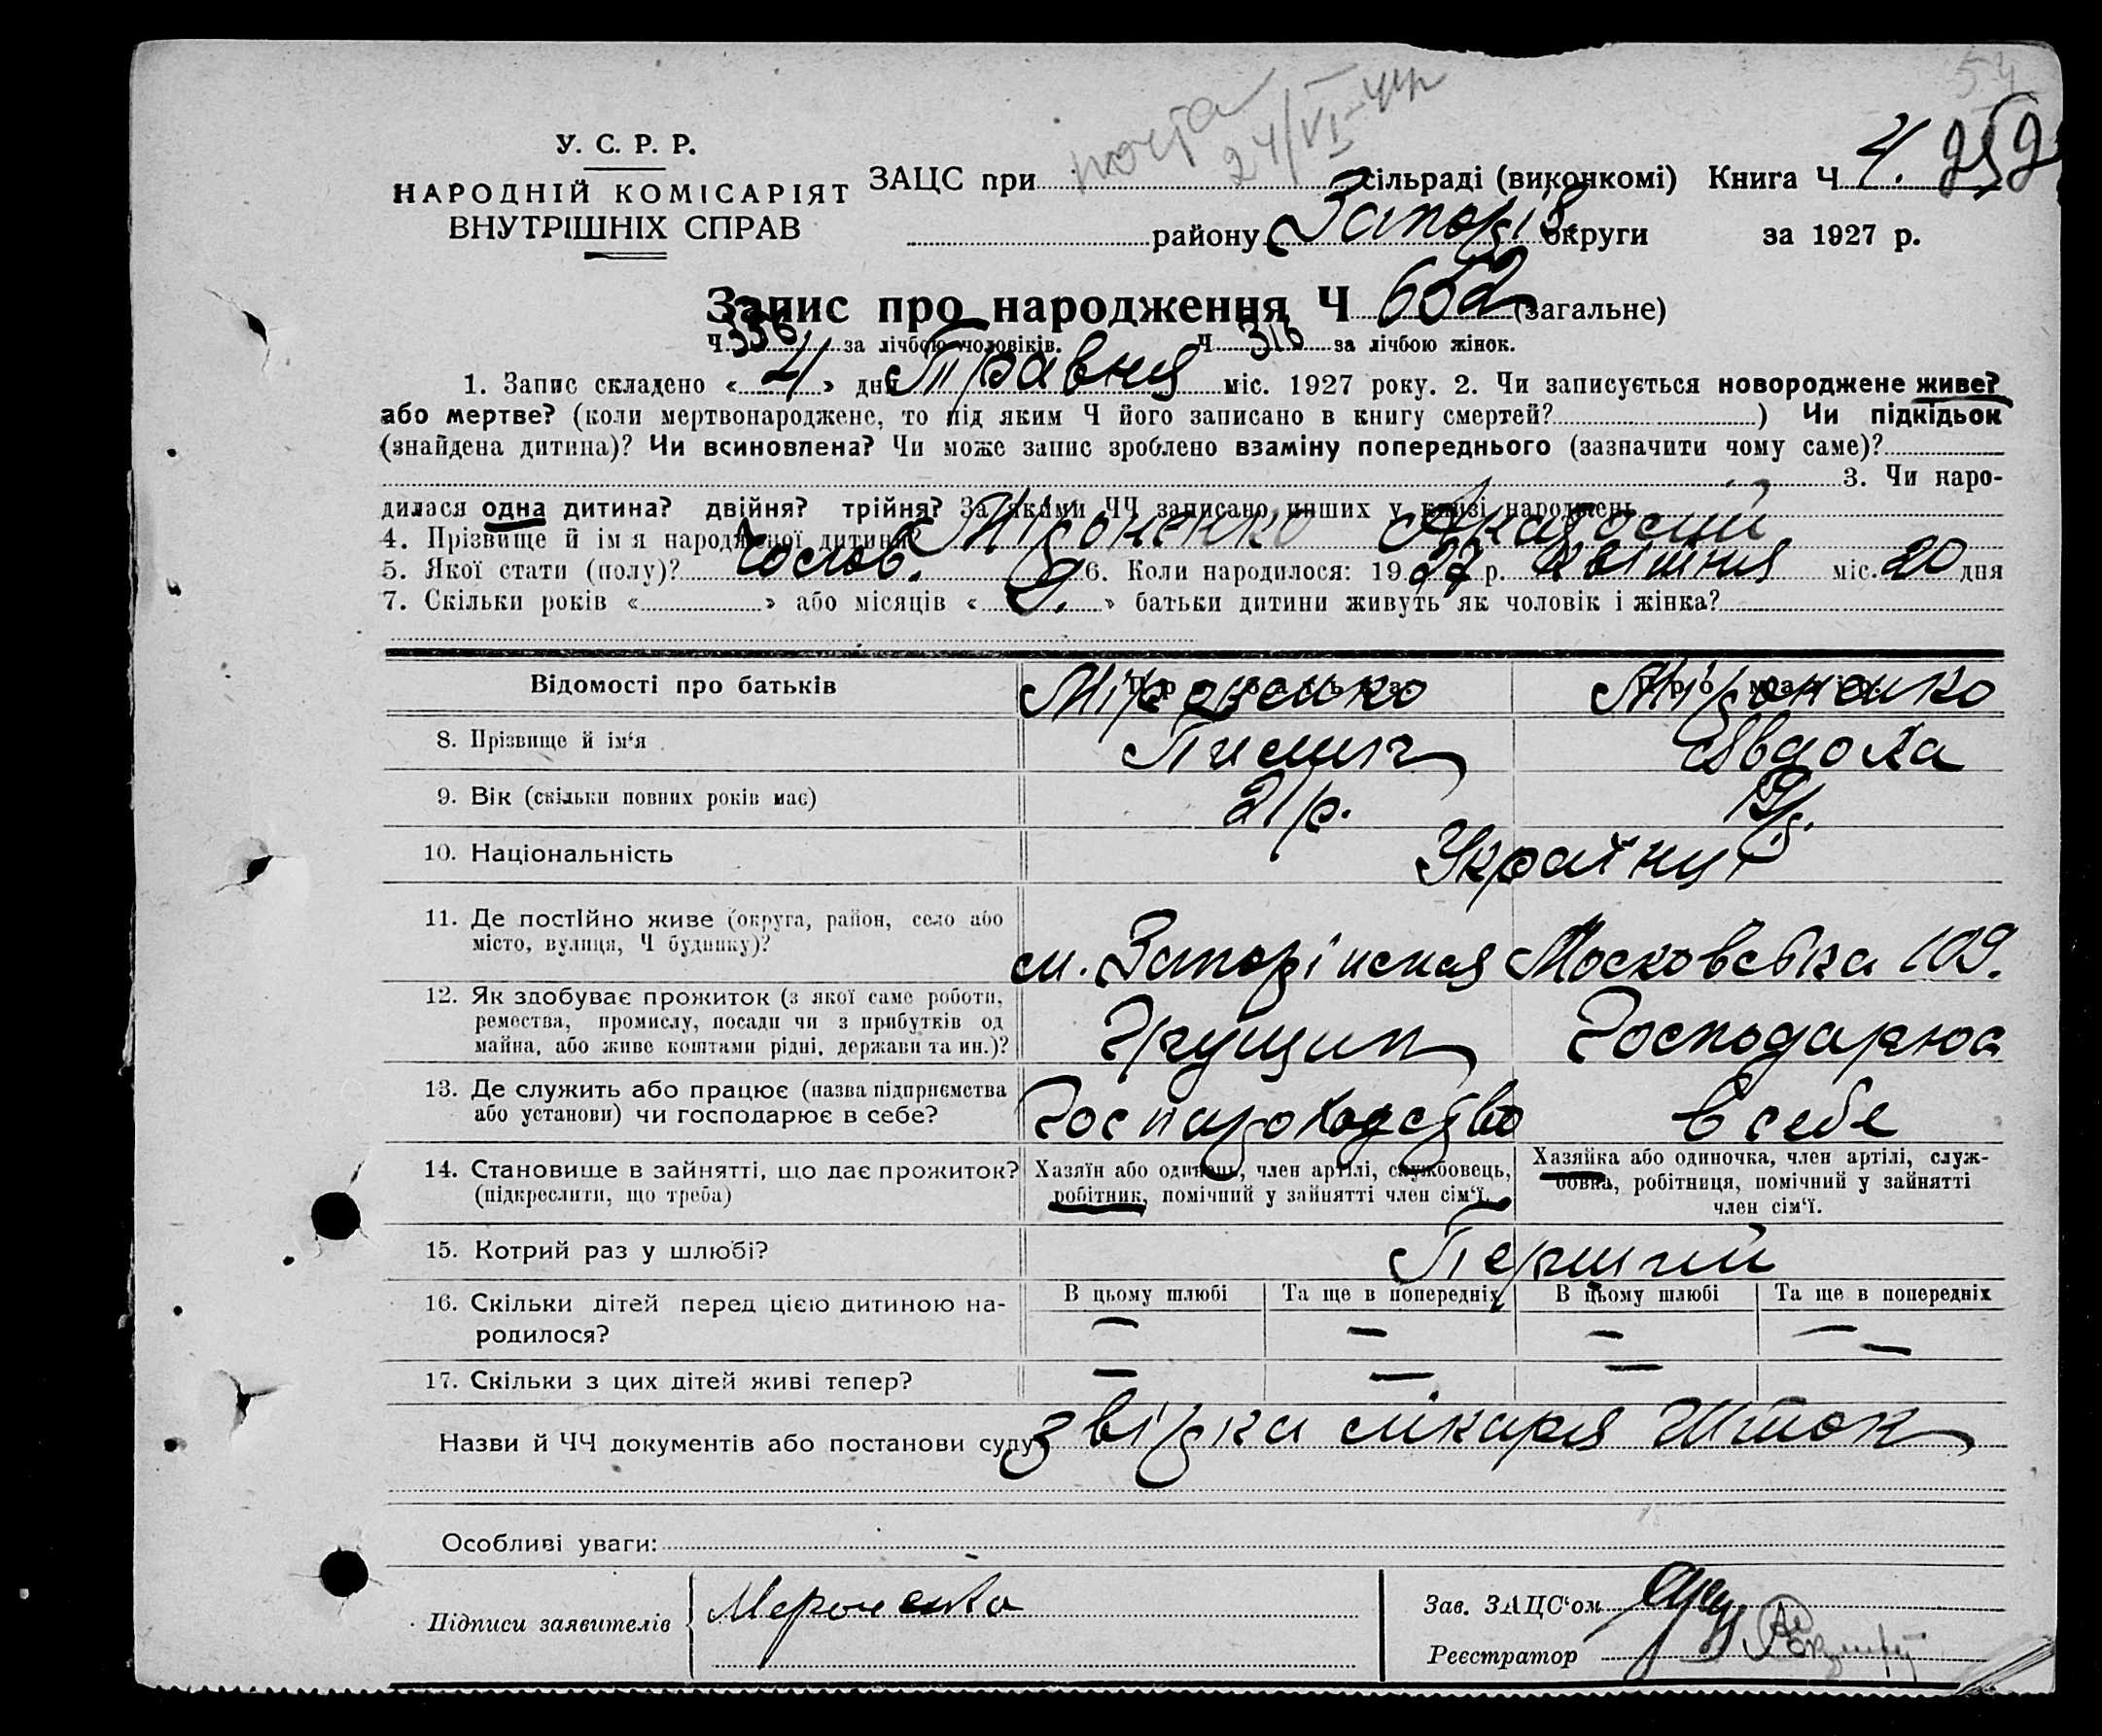 У. С. Р. Р.
НАРОДНІЙ КОМІСАРІЯТ
ВНУТРІШНІХ СПРАВ
ЗАЦС при сільраді (виконкомі) Книга Ч 4.
району Запоріз. округи за 1927 р.
Запис про народження Ч 652 (загальне)
Ч 336 за лічбою чоловіків. Ч 316 за лічбою жінок.
1. Запис складено « 4 » дня Травня міс. 1927 року. 2. Чи записується новороджене живе?
або мертве? (коли мертвонароджене, то під яким Ч його записано в книгу смертей? ) Чи підкідьок
(знайдена дитина)? Чи всиновлена? Чи може запис зроблено взаміну попереднього (зазначити чому саме)?
3. Чи наро-
дилася одна дитина? двійня? трійня? За якими ЧЧ записано инших у книзі народжень
4. Прізвище й ім'я народженої дитини? Міроненко
5. Якої стати (полу)? чолов. 6. Коли народилося: 1927 р. квітня міс. 20 дня
7. Скільки років « » або місяців « 9. » батьки дитини живуть як чоловік і жінка?
Відомості про батьків
Міроненко Міроненко
8. Прізвище й ім‘я Пилип Явдоха
9. Вік (скільки повних років має) 21 р. 19 р.
10. Національність Українці
11. Де постійно живе (округа, район, село або
місто, вулиця, Ч будинку)?
м. Запоріжжя Московська 109.
12. Як здобуває прожиток (з якої саме роботи,
ремества, промислу, посади чи з прибутків од
майна, або живе коштами рідні, держави та ин.)?
Грущик Господарює
13. Де служить або працює (назва підприємства
або установи) чи господарює в себе?
Госпароходство в себе
14. Становище в зайнятті, що дає прожиток?
(підкреслити, що треба)
Хазяїн або одинець, член артілі, службовець,
робітник, помічний у зайнятті член сім‘ї.
Хазяйка або одиночка, член артілі, служ-
бовка, робітниця, помічний у зайнятті
член сім‘ї.
15. Котрий раз у шлюбі? Перший
16. Скільки дітей перед цією дитиною на-
родилося?
В цьому шлюбі Та ще в попередніх В цьому шлюбі Та ще в попередніх
— — — —
17. Скільки з цих дітей живі тепер? — — — —
Назви й ЧЧ документів або постанови суду звірка лікаря Шток
Особливі уваги:
Підписи заявителів Мероненко
Зав. ЗАЦС‘ом
Реєстратор